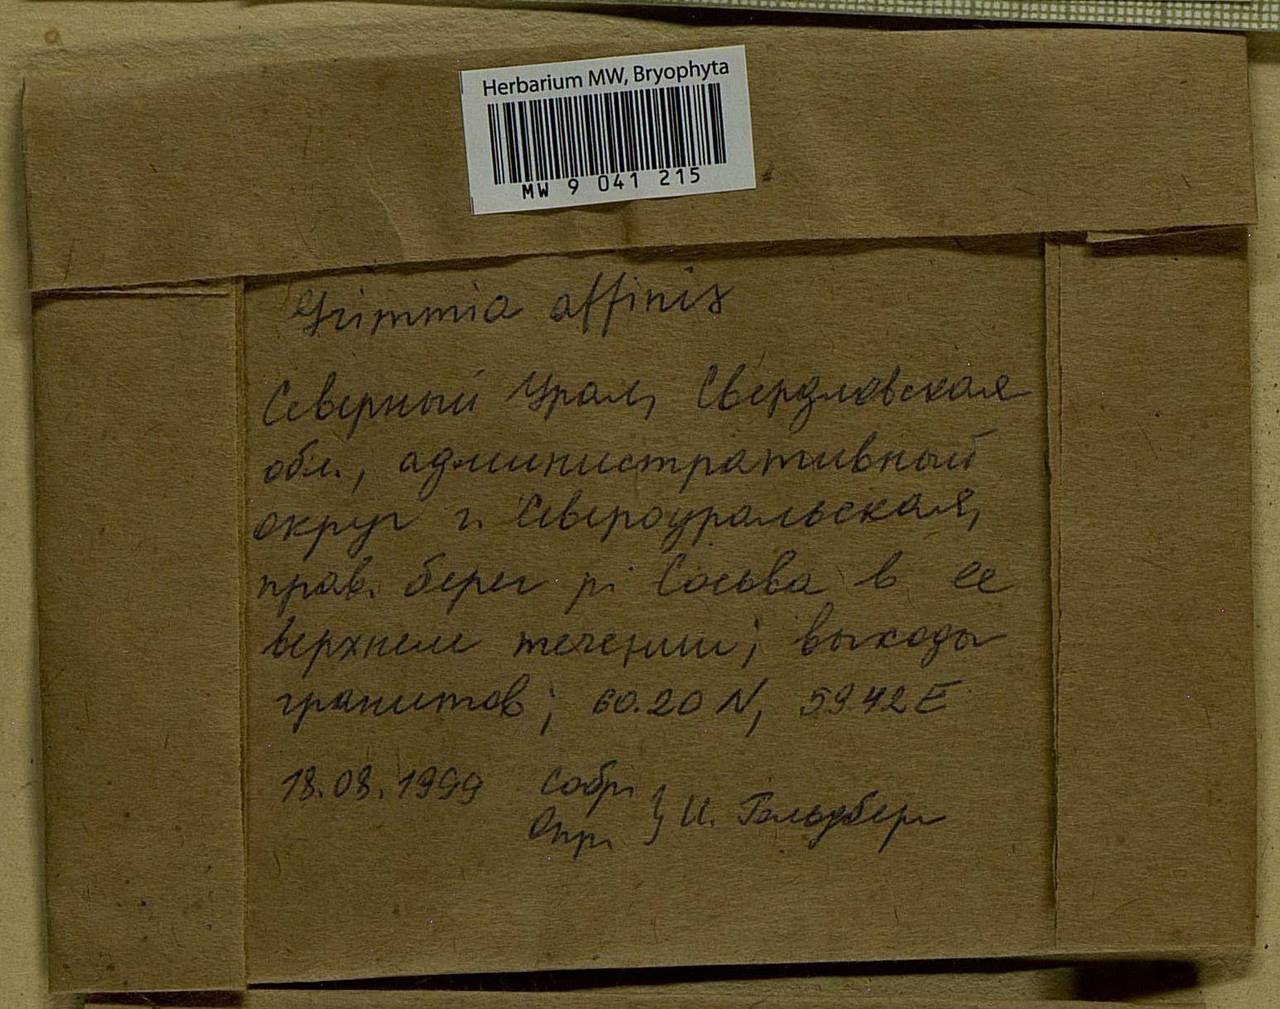 Herbarium MW, Bryophyta
MW 9 041 215
Grimmia affinis
Северный Урал, Свердловская
обл., административный
округ г. Североуральская,
прав. берег р. Сосьва в ее
верхнем течении; выходы
гранитов; 60.20 N, 59.42 E
18.08.1999 Собр.
Опр. } И. Гольдберг